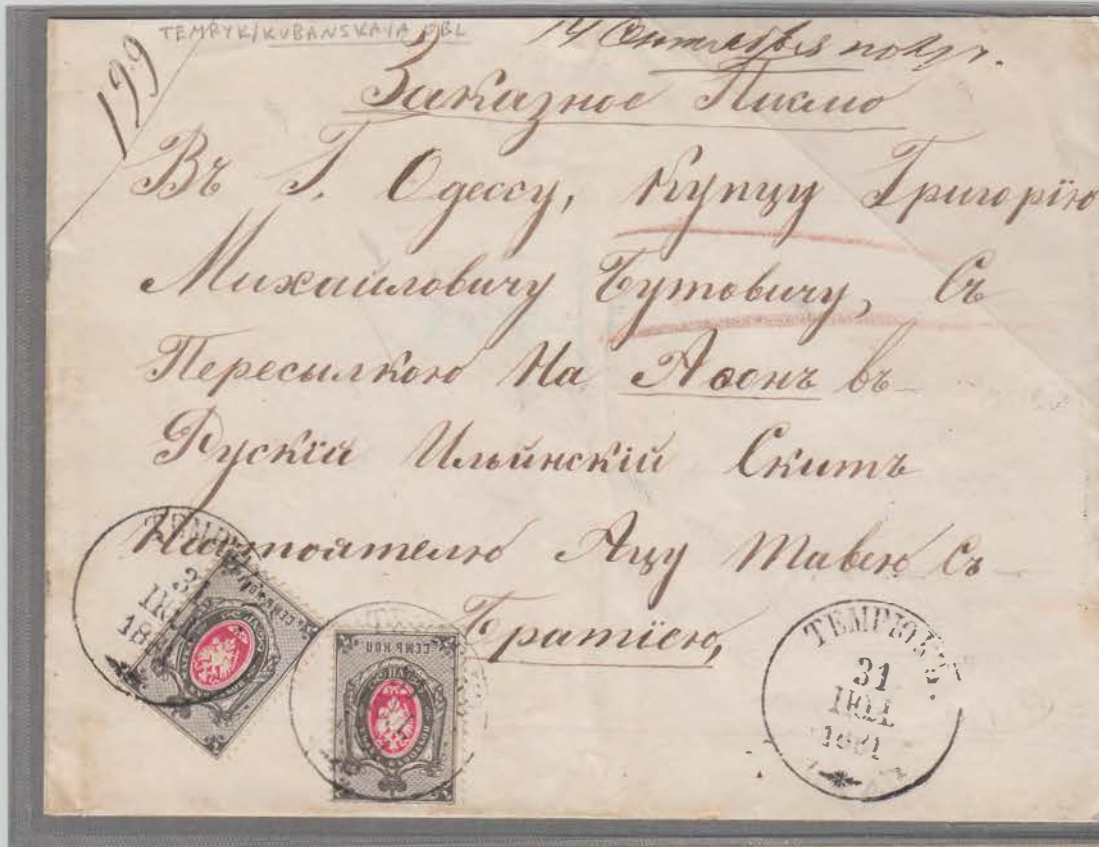 TEMRYK/KUBANSKAIA OBL
14 Сентября получ.
199
Заказное Писмо
Въ Г. Одессу, Купцу Григорію
Михаиловичу Бутовичу, Съ
Пересылкою На Аѳонъ въ
Рускій Ильинскій Скитъ
Настоятелю Ацу Тавею Съ
Братіею,
ТЕМРЮКЪ.
31
ІЮЛ
1881
ТЕМР
31
ІЮЛ
18
СЕМЬ КОП